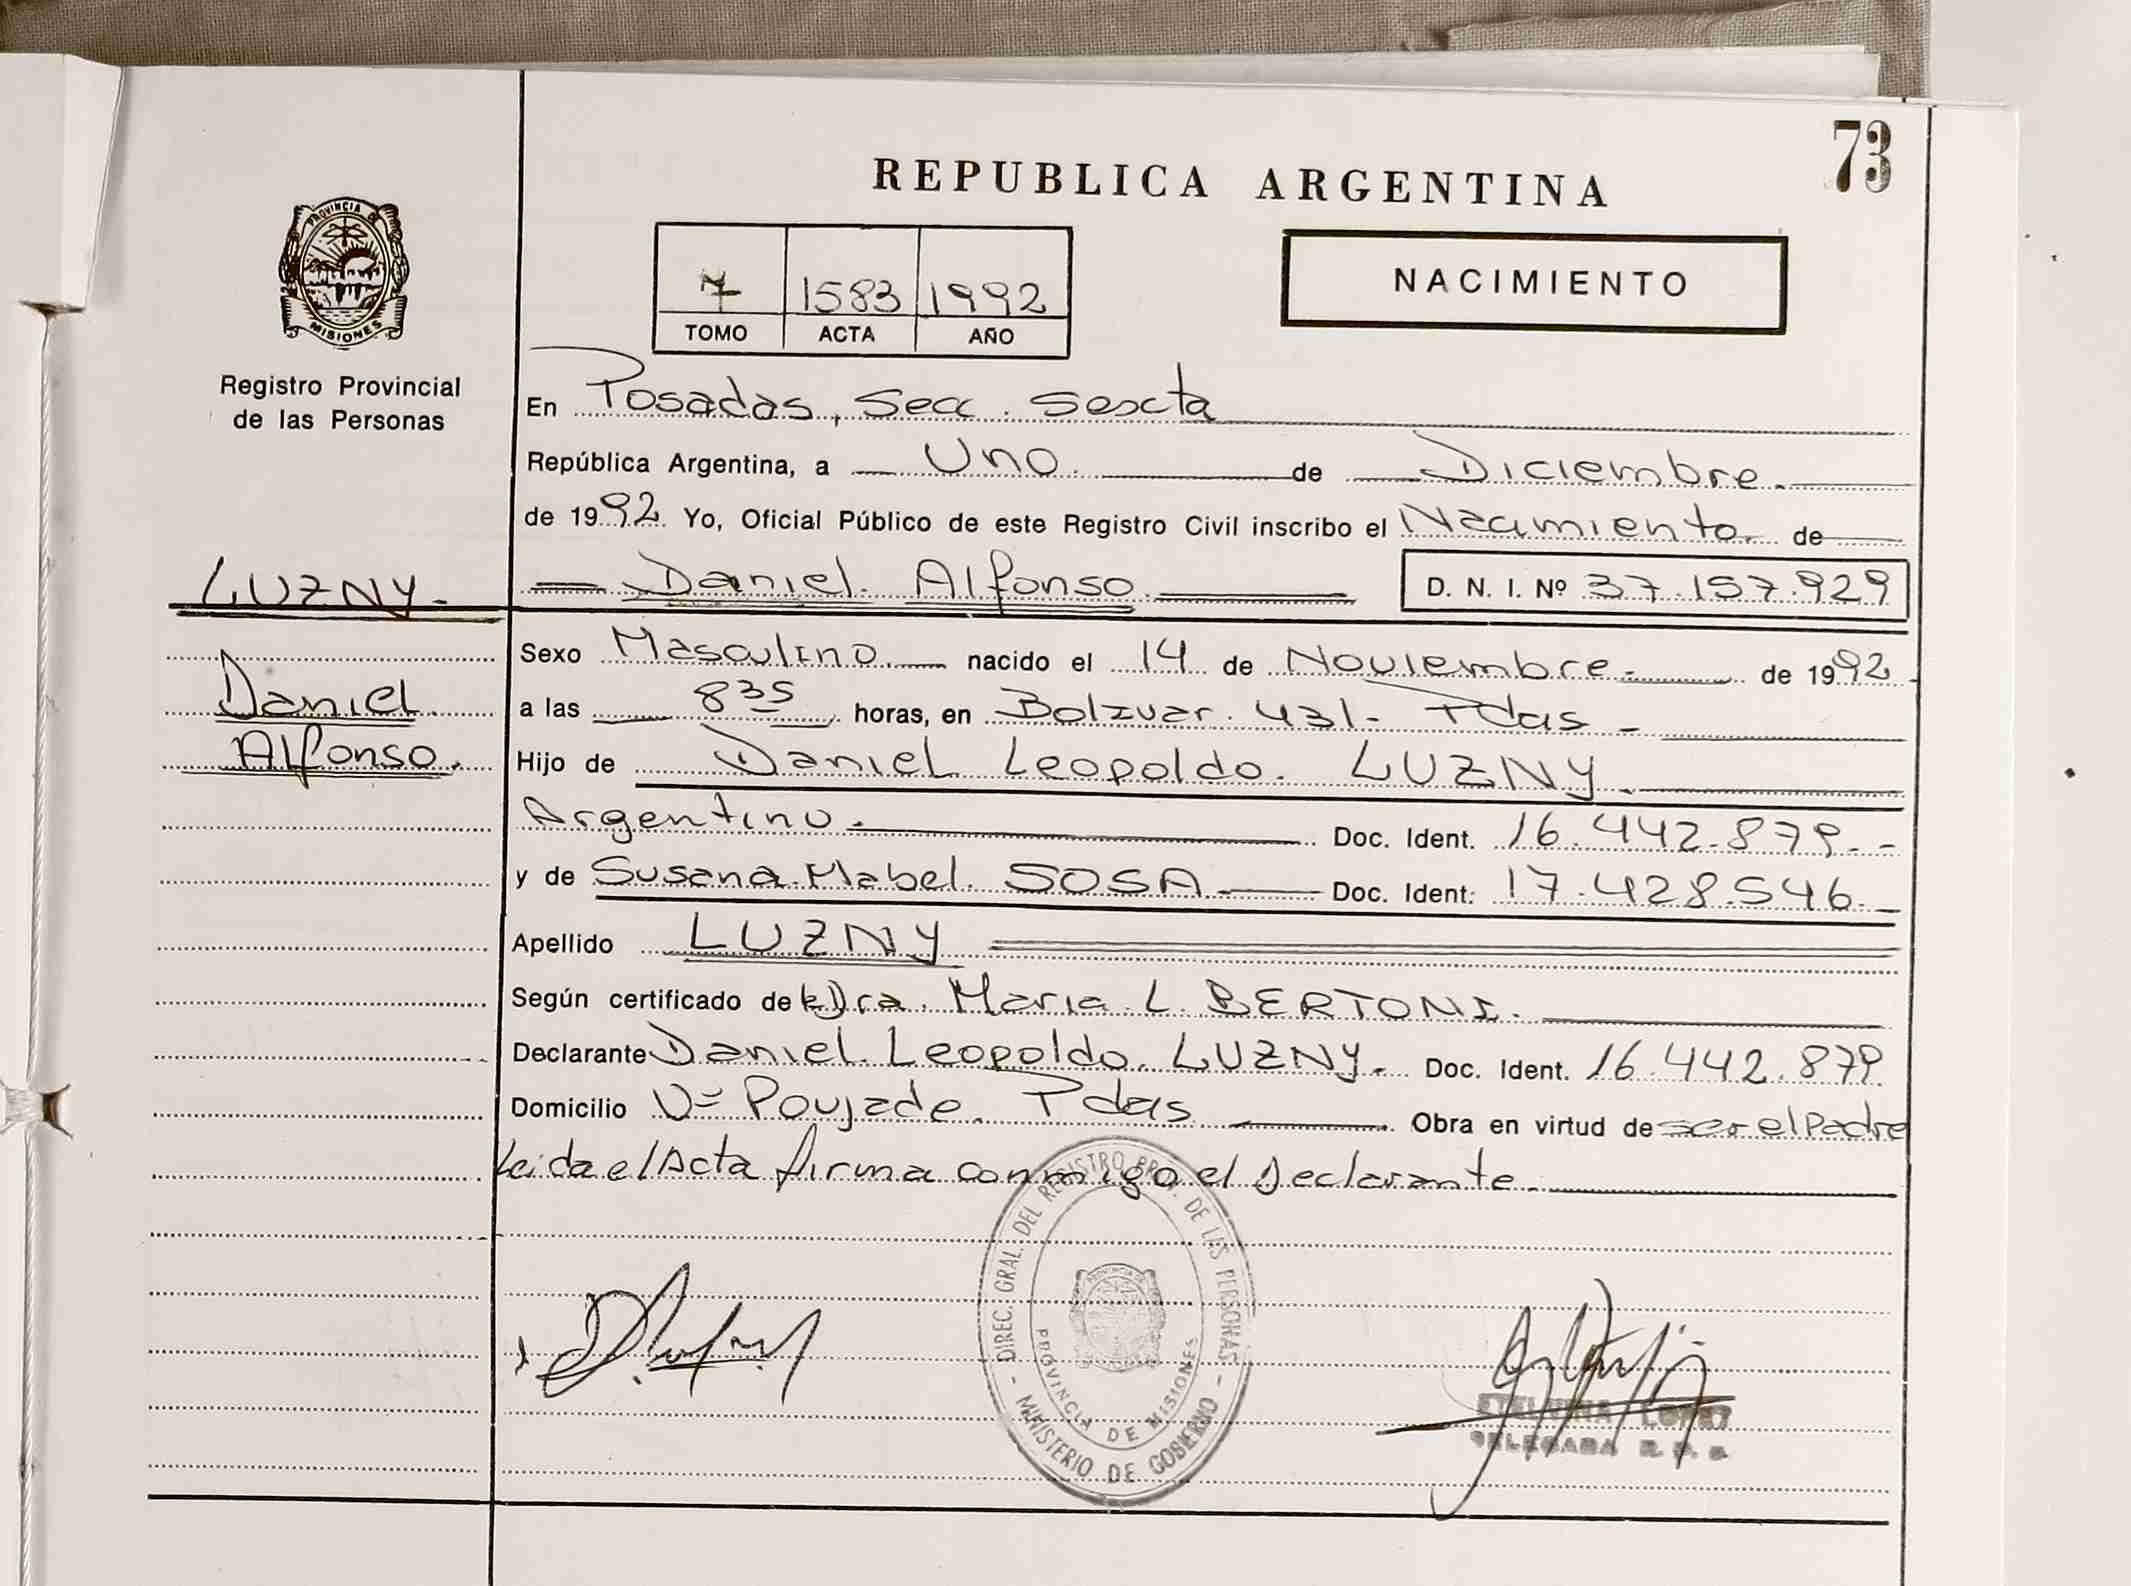 73
REPUBLICA ARGENTINA
PROVINCIA DE
MISIONES
Registro Provincial
de las Personas
1583 1992
TOMO ACTA AÑO
NACIMIENTO
En Posadas, Secc. Sexcta
República Argentina, a Uno de Diciembre.
de 1992. Yo, Oficial Público de este Registro Civil inscribo el Nacimiento de
LUZNY. Daniel Alfonso D. N. I. Nº 37.157.929
Sexo Masculino nacido el 14 de Noviembre de 1992
Daniel
a las 8 35 horas, en Bolivar 431- Pdas
Alfonso.
Hijo de Daniel Leopoldo LUZNY
Argentino. Doc. Ident. 16.442.879
y de Susana Mabel SOSA Doc. Ident: 17.428.546
Apellido LUZNY
Según certificado de Dra. Maria L. BERTONI.
Declarante Daniel Leopoldo LUZNY. Doc. Ident. 16.442.879
Domicilio Poujade. Pdas Obra en virtud de ser el Padre
Leida el Acta firma conmigo el Declarante.
DIREC. GRAL. DEL REGISTRO PROV. DE LAS PERSONAS
PROVINCIA DE MISIONES
- MINISTERIO DE GOBIERNO -
ETELVINA LOPEZ
DELEGADA